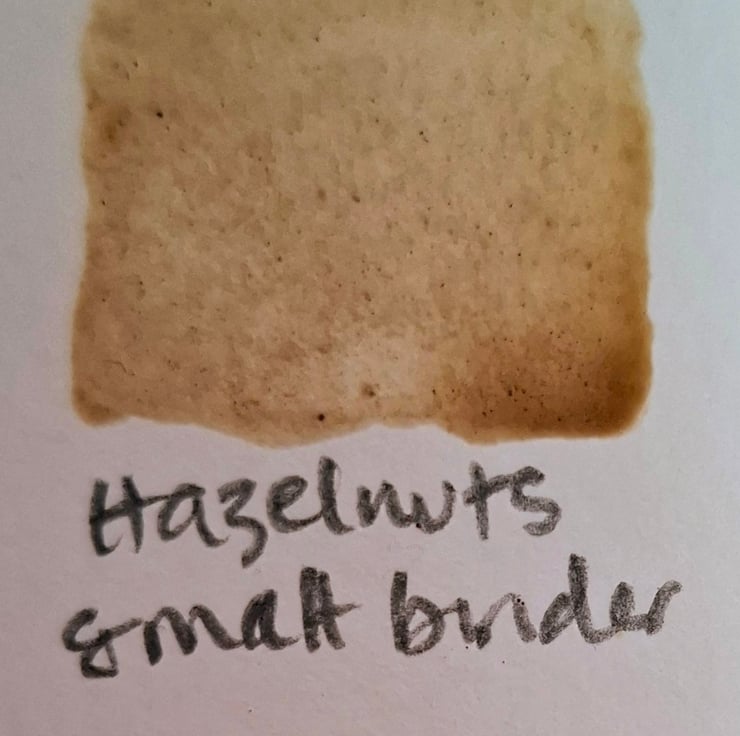 Hazelnuts
& malt binder